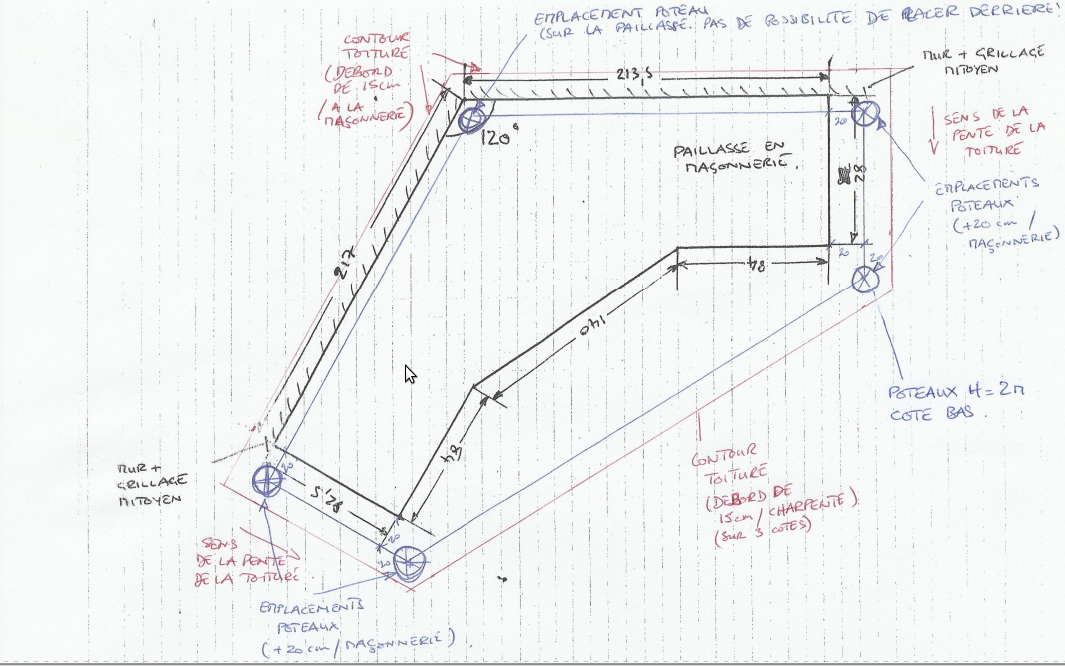 EMPLACEMENT POTEAU
(SUR LA PAILLASSE. PAS DE POSSIBILITE DE PLACER DERRIERE!
CONTOUR
TOITURE
(DEBORD
DE 15cm
/ A LA
MAÇONNERIE)
213,5
MUR + GRILLAGE
MITOYEN
120°
20
SENS DE LA
PENTE DE LA
TOITURE
PAILLASSE EN
MAÇONNERIE.
82
EMPLACEMENTS
POTEAUX
(+20 cm /
MAÇONNERIE)
217
20
20
84
140
POTEAUX H=2m
COTE BAS.
84
MUR +
GRILLAGE
MITOYEN
20
82,5
CONTOUR
TOITURE
(DEBORD DE
15cm / CHARPENTE)
(SUR 3 COTES)
20
SENS
DE LA PENTE
DE LA TOITURE.
EMPLACEMENTS
POTEAUX
(+20 cm / MAÇONNERIE).